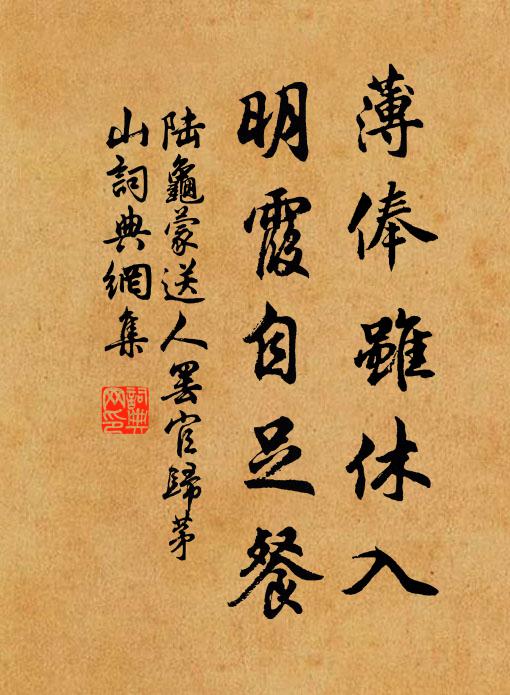 薄俸雖休入
明霞自足餐
陸龜蒙送人罢官歸茅
山詞典網集
詞典
网印